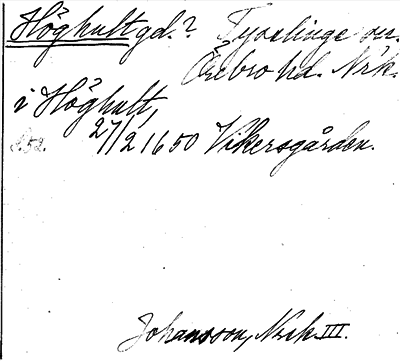 Höghult gd.? Tysslinge sn.
Örebro hd. Nrk.
i Höghult,
27/2 1650 Vikersgården.
Johansson, Nrk. III.